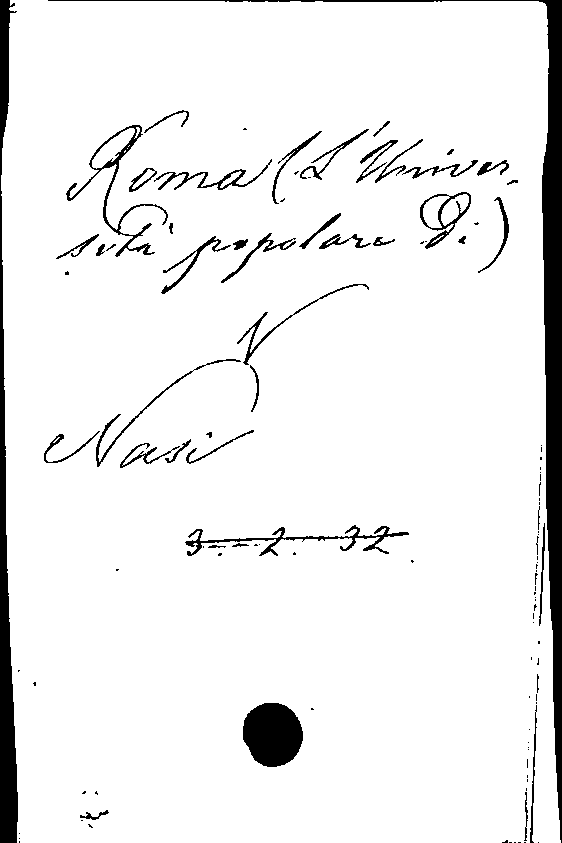 Roma (L'Univer-
sità popolare di)
V
Nasi
3.-2.-32